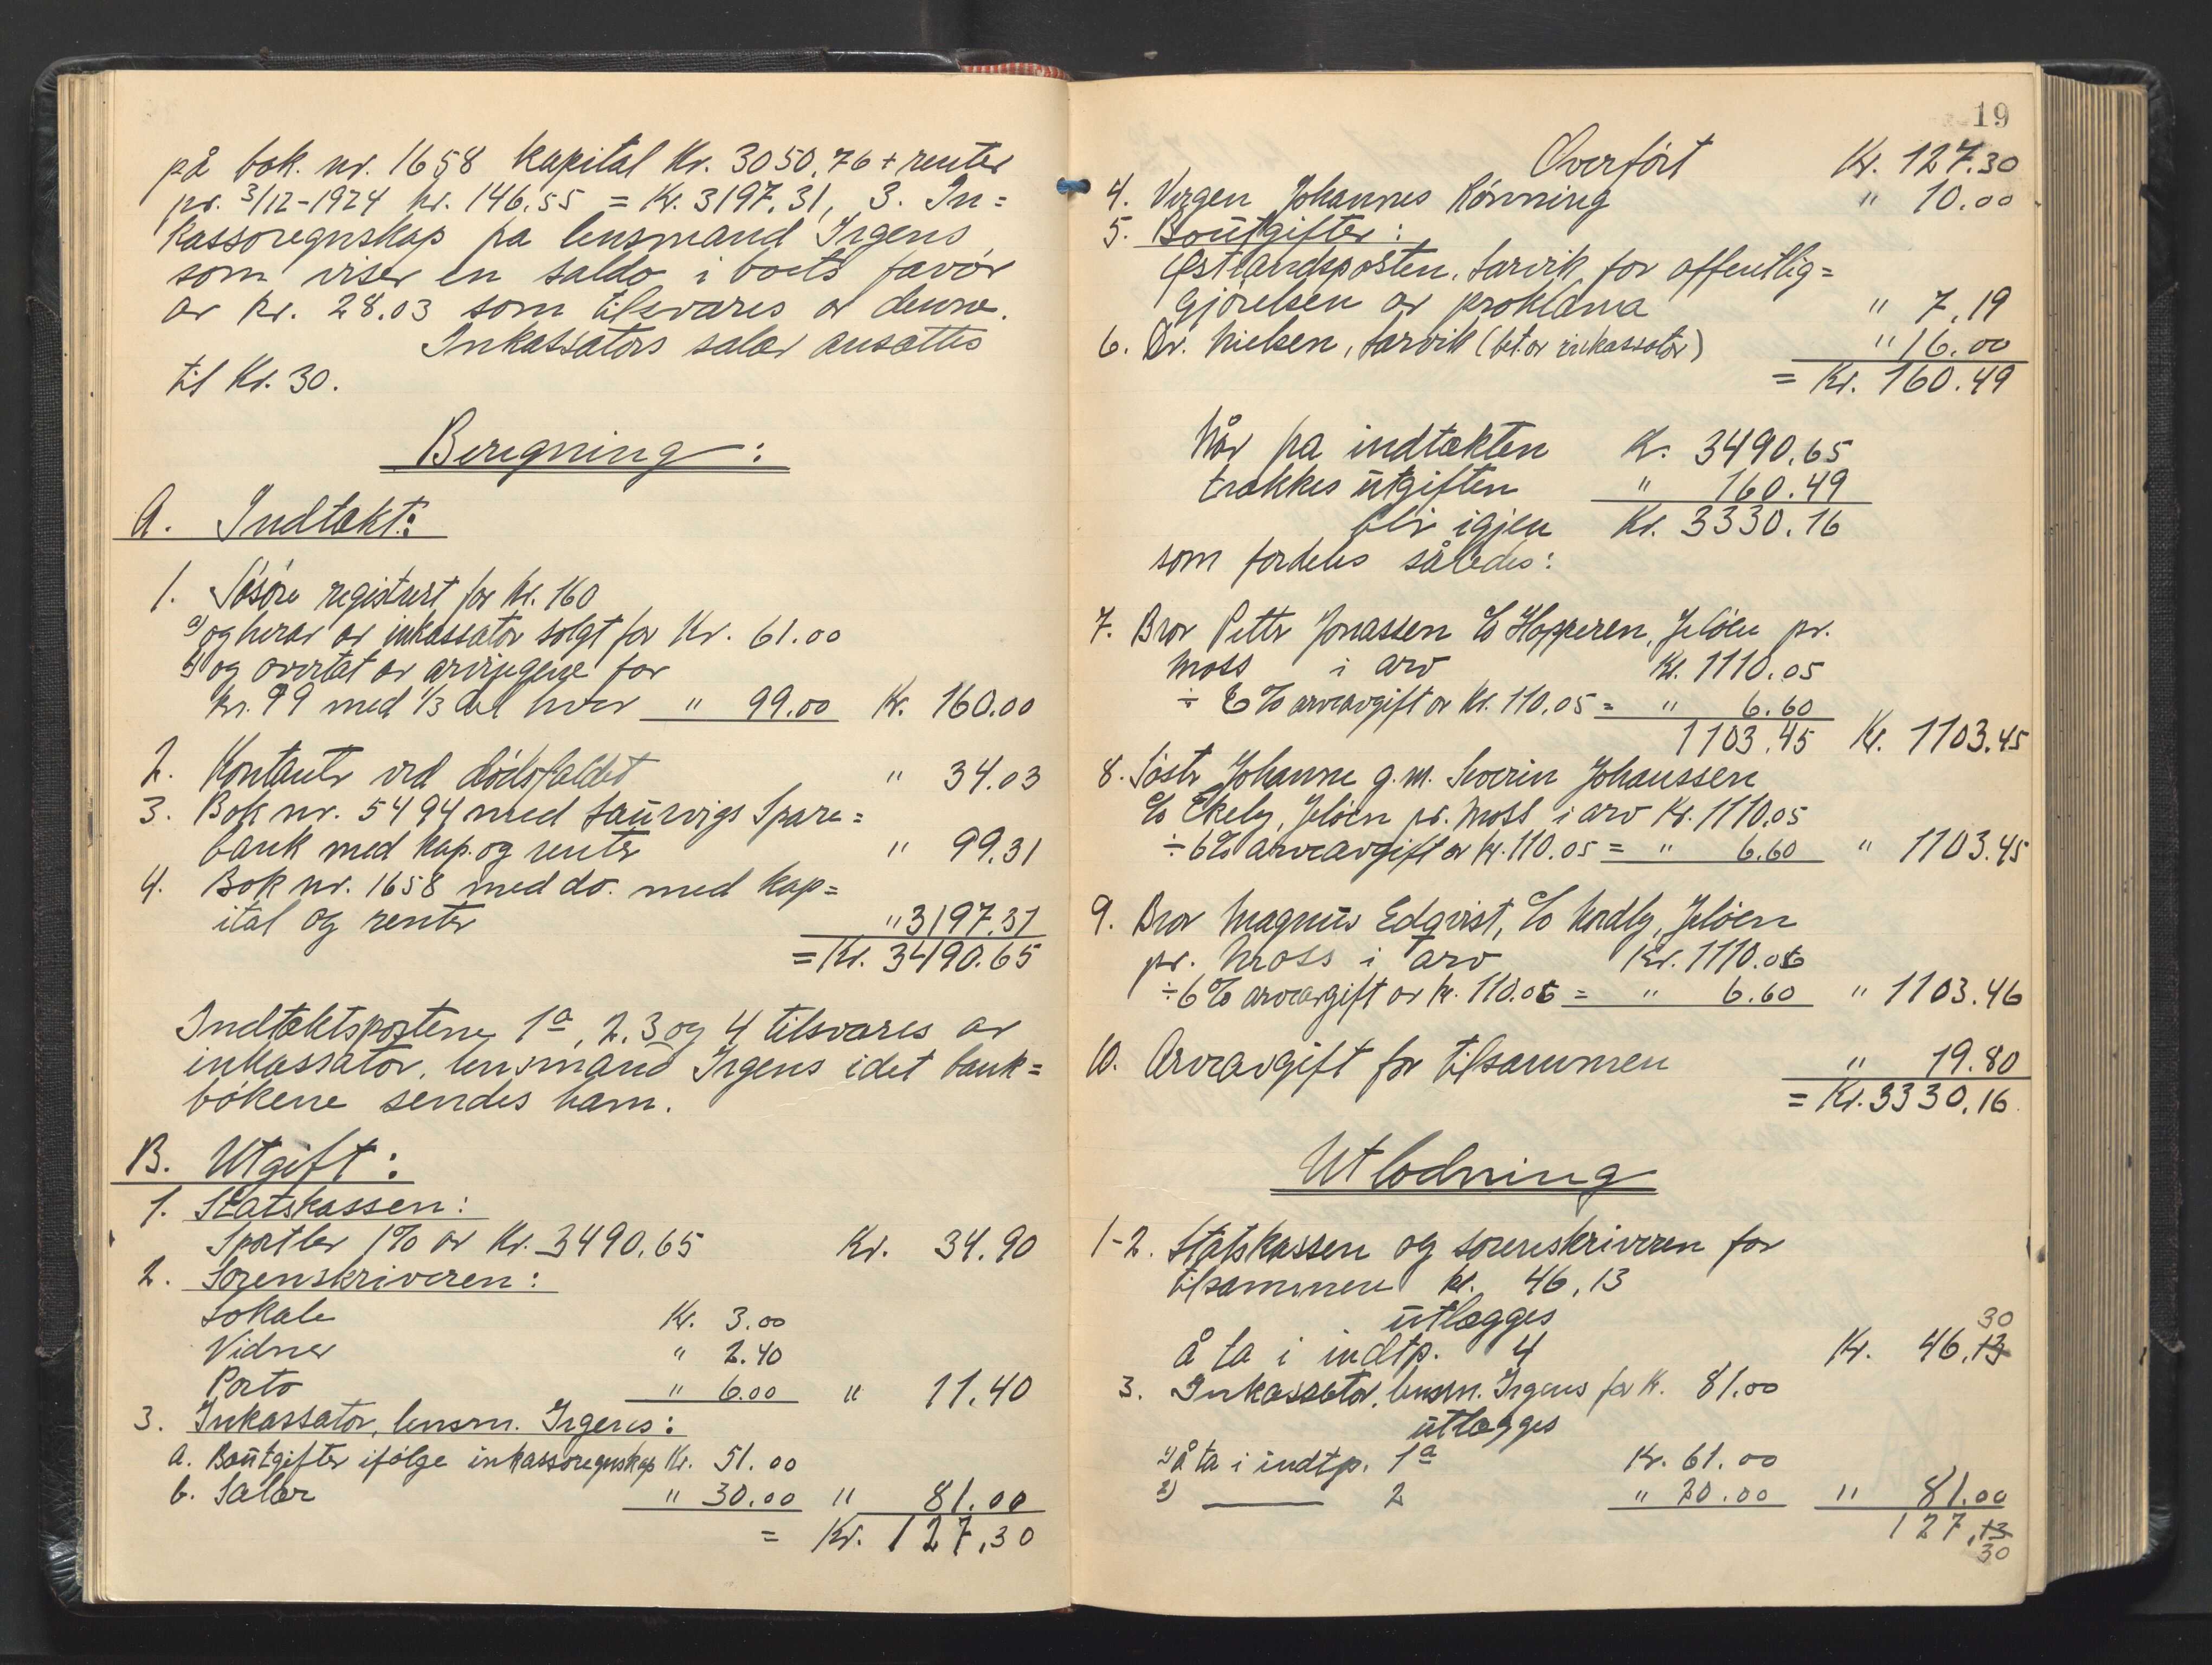 på bok. nr. 1658 kapital Kr. 3050,76 + renter
pr. 3/12-1924 kr. 146,55 = Kr. 3197,31, 3. In=
kassoregnskap fra lensmand Irgens,
som viser en saldo i boets favör
av kr. 28.03 som tilsvares av denne.
Inkassators salær ansættes
til Kr. 30.
Beregning:
A. Indtækt:
1. Lösöre registrert for Kr. 160
a) og herav av inkassator solgt for Kr. 61.00
b) og overtat av arvingene for
kr. 99 med 1/3 del hver " 99.00 Kr. 160.00
2. Kontanter ved dödsfaldet " 34.03
3. Bok nr. 5494 med Laurvigs Spare=
bank med kap. og renter " 99.31
4. Bok nr. 1658 med do. med kap=
ital og renter " 3197.31
= Kr. 3490.65
Indtektspostene 1a, 2. 3 og 4 tilsvares av
inkassator, lensmand Irgens idet bank=
bökene sendes ham.
B. Utgift:
1. Statskassen:
Sportler 1% av Kr. 3490.65 Kr. 34.90
2. Sorenskriveren:
Lokale Kr. 3.00
Vidner " 2.40
Porto " 6.00 " 11.40
3. Inkassator, lensm. Irgens:
a. Boutgifter ifölge inkassoregnskap Kr. 51.00
b. Salær " 30.00 " 81.00
= Kr. 127,30
19
Overfört Kr. 127.30
4. Vergen Johannes Rönning " 10.00
5. Boutgifter:
Östlandsposten, Larvik, for offentlig=
gjörelsen av proklama " 7,19
6. Dr. Nielsen, Larvik (bet. av inkassator) " 16.00
= Kr. 160.49
Når fra indtækten Kr. 3490.65
trækkes utgiften " 160.49
blir igjen Kr. 3330.16
som fordeles således:
7. Bror Petter Jonassen c/o Hopperen, Jelöen pr.
Moss i arv Kr. 1110.05
÷ 6% arveavgift av Kr. 110.05 = " 6.60
1103.45 Kr. 1103.45
8. Söster Johanne g. m. Severin Johanssen
c/o Ekely, Jelöen pr. Moss i arv Kr. 1110,05
÷ 6% arveavgift av kr. 110.05 = " 6.60 " 1103.45
9. Bror Magnus Edqvist, c/o Nordly, Jelöen
pr. Moss i arv Kr. 1110.06
÷ 6% arveavgift av kr. 110.06 = " 6.60 " 1103.46
10. Arveavgift for tilsammen " 19.80
= Kr. 3330,16
Utlodning
1-2. Statskassen og sorenskriveren for
tilsammen kr. 46,13
utlægges
30
å ta i indtp. 4 Kr. 46,13
3. Inkassator, lensm. Irgens for kr. 81.00
utlægges
1) å ta i indtp. 1a Kr. 61.00
2) — 2 " 20.00 " 81.00
127,13
30